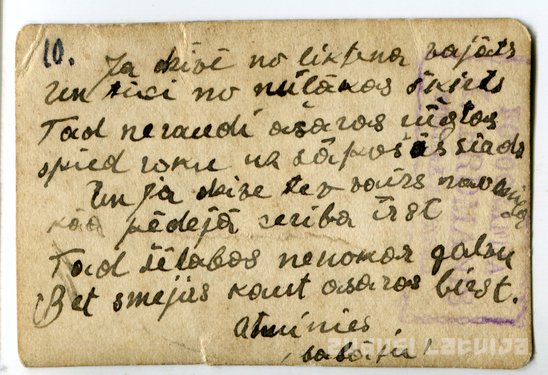 10.
Ja dzīvē no liktena vajāts
Un tici no mīlākas šķirts
Tad neraudi asaras rūgtas
spied roku uz sāpošās sirds
Un ja dzīve tev vairs nav
kāā pēdejā ceriba irst
Tad šēlabas nenokar galvu
Bet smejies kaut asaras birst.
atminies
zudusi latvija